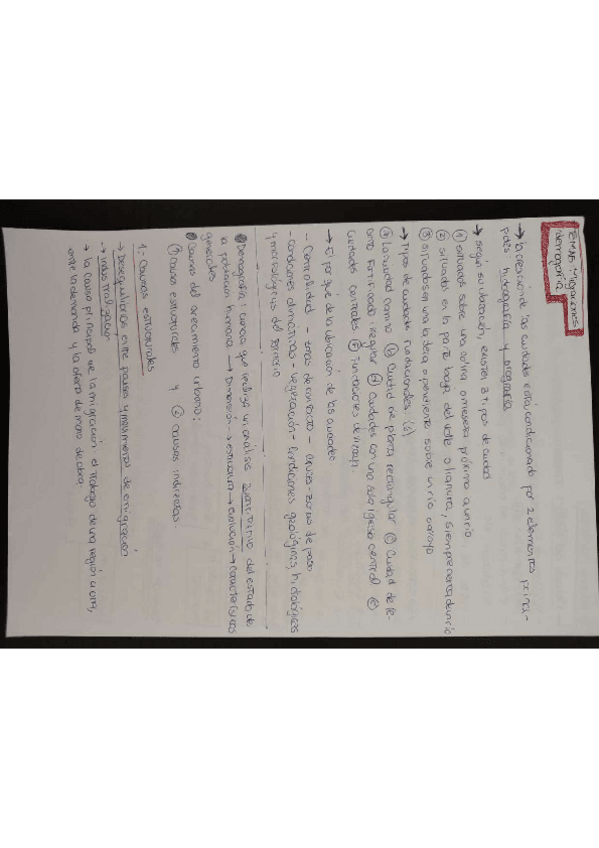 TEMA 6: Migraciones
demografía
→ la creación de las ciudades está condicionado por 2 elementos princi-
pales: hidrografía y orografía
→ según su ubicación, existen 3 tipos de ciudad
① situados sobre una colina o meseta próximo a un río
② situado en la parte baja del valle o llanura, siempre cerca de un río
③ situados en una ladera o pendiente sobre un río o arroyo
→ Tipos de ciudades fundacionales (6)
① La ciudad camino ② Ciudad de planta rectangular ③ Ciudad de re-
cinto fortificado irregular ④ Ciudades con una sola iglesia central ⑤
ciudades centrales ⑥ Fundaciones de
→ El por qué de la ubicación de las ciudades
- Centralidad - zonas de contacto - cruces - zonas de paso
- Condiciones climáticas - vegetación - condiciones geológicas, hidrológicas
y morfológicas del terreno
● Demografía: ciencia que realiza un análisis cuantitativo del estado de
la población humana → Dimensión → estructura → evolución → características
generales
● Causas del crecimiento urbano:
① causas estructurales y ② causas indirectas.
1.- Causas estructurales
→ Desequilibrios entre países y movimientos de emigración
→ industrialización
→ la causa principal de la migración el trabajo de una región u otra,
entre la demanda y la oferta de mano de obra.